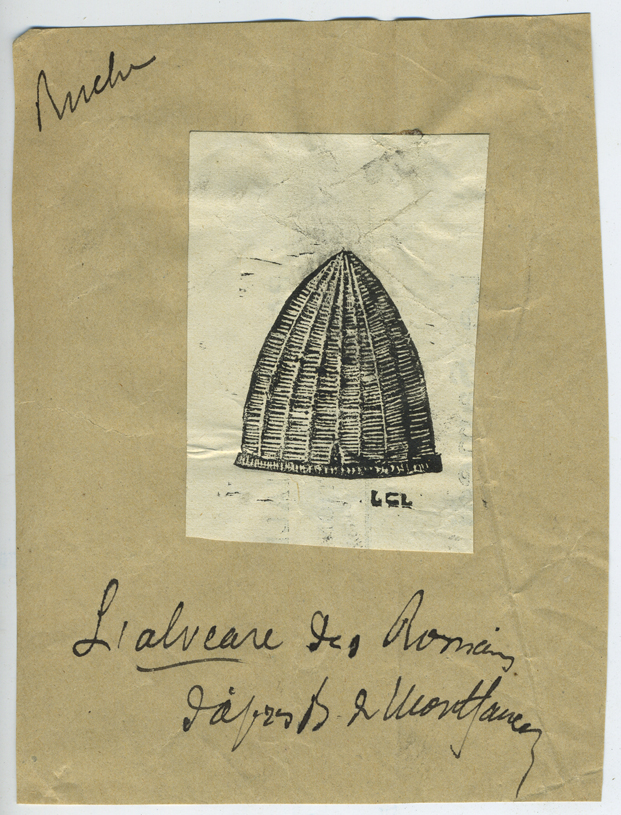 Ruche
LCL
L'alveare des Romains
d'après B. de Montfaucon